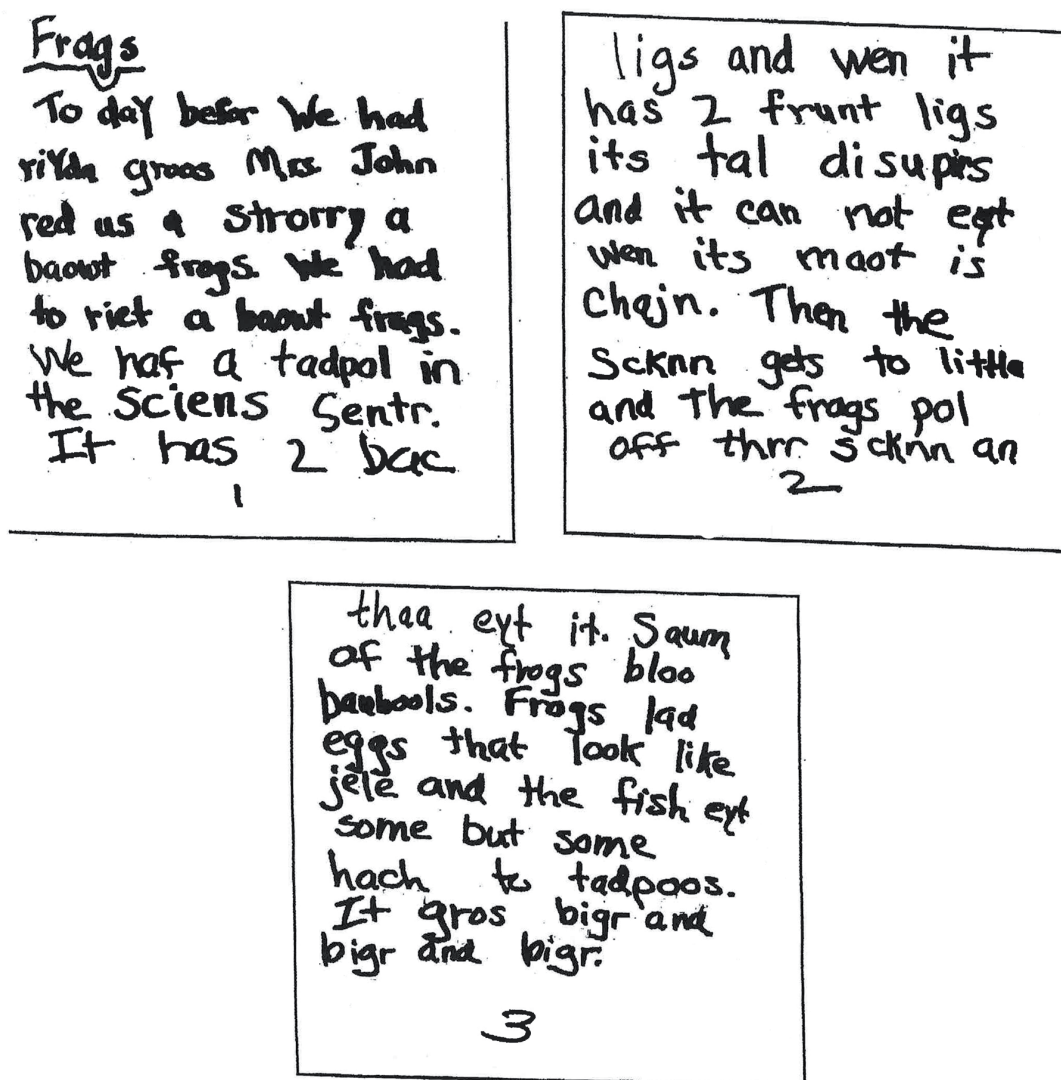 Frags
To day befor We had
riYda groos Mrs. John
red us a strorry a
baowt frogs. We had
to riet a baowt frags.
We haf a tadpol in
the Sciens Sentr.
It has 2 bac
1
ligs and wen it
has 2 frunt ligs
its tal disupirs
and it can not eyt
wen its maot is
Chajn. Then the
Scknn gets to little
and The frogs pol
off thrr scknn an
2
thaa eyt it. Saum
of the frogs bloo
baubools. Frogs lad
eggs that look like
jele and the fish eyt
some but some
hach to tadpoos.
It gros bigr and
bigr and bigr.
3